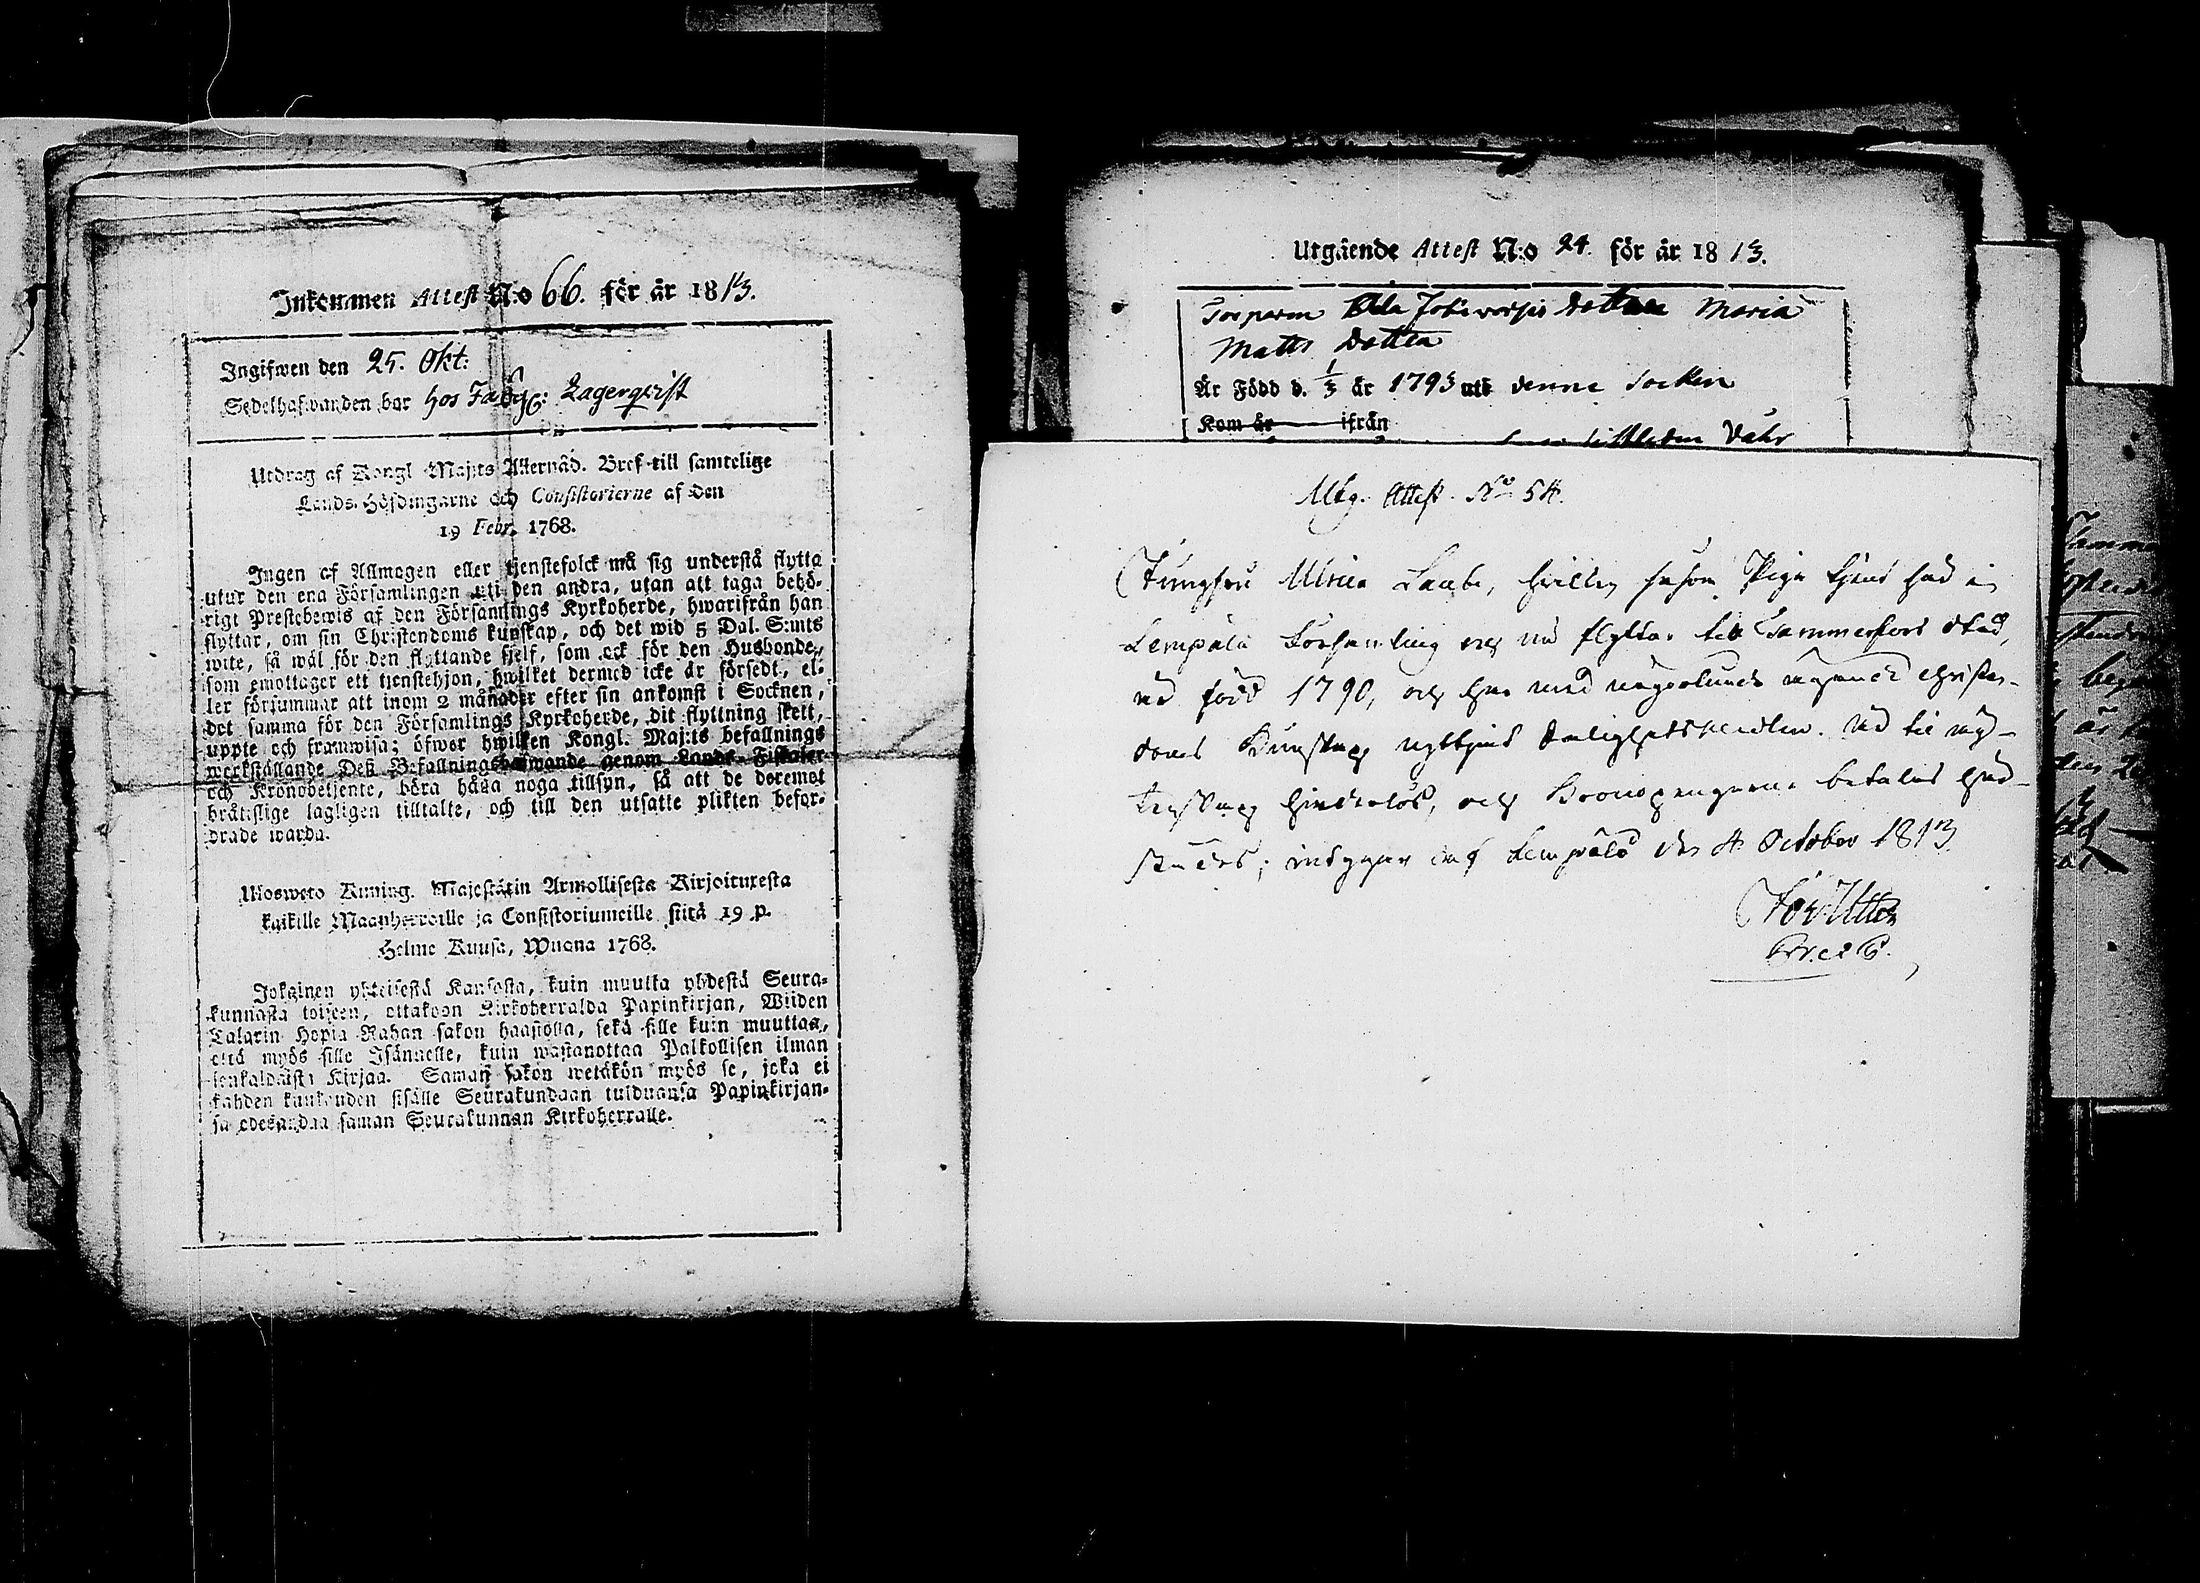 Inkommen Attest N:o 66. för år 1813.
Ingifwen den 25. Okt:
Sedelhafwanden bor hos Fabr: Lagerqvist
Utdrag af Kongl Maj:ts Allernåd. Bref till samtelige
Lands-Höfdingarne och Consistorierne af den
19 Febr. 1768.
Ingen af Allmogen eller tjenstefolck må sig understå flytta
utur den ena Församlingen uti den andra, utan att taga behö-
rigt Prestebewis af den Församlings Kyrkoherde, hwarifrån han
flyttar, om sin Christendoms kunskap, och det wid 5 Dal. S:mts
wite, så wäl för den flyttande sjelf, som ock för den Husbonde,
som emottager ett tjenstehjon, hwilket dermed icke är försedt, el-
ler försummar att inom 2 månader efter sin ankomst i Socknen,
det samma för den Församlings Kyrkoherde, dit flyttning skett,
uppte och framwisa; öfwer hwilken Kongl. Maj:ts befallnings
werkställande Deß Befallningshafwande genom Lands-Fiskaler
och Kronobetjente, böra hafwa noga tillsyn, så att de deremot
bråtslige lagligen tilltalte, och till den utsatte plikten befor-
drade warda.
Ulosweto Kuning. Majestätin Armollisesta Kirjoituxesta
kaikille Maanherroille ja Consistoriumeille siitä 19 p.
Helme Kuusa, Wuona 1768.
Jokainen yhteisestä Kansasta, kuin muutta yhdestä Seura-
kunnasta toiseen, ottakoon Kirkoherralda Papinkirjan, Wiiden
Talarin Hopia Rahan sakon haastolla, sekä sille kuin muuttaa,
että myös sille Isännelle, kuin wastanottaa Palkollisen ilman
senkaldaista Kirjaa. Saman sakon wetäkön myös se, joka ei
kahden kuukauden sisälle Seurakundaan tulduansa Papinkirjan-
sa edesandaa saman Seurakunnan Kirkoherralle.
Utgående Attest N:o 24. för år 1813.
Torparen Jokiwarsis dotter Maria
Matts Dotter
Är Född d. 1/3 år 1793 uti denne Socken
Kom år ifrån
Utg. Attest. No 54.
Jungfru Ulrica Laube, hvilken såsom Piga tjent här i
Lempälä Församling och nu flyttar till Tammerfors stad,
är född 1790, och har med någorlunda Christen-
doms Kunskap nyttjat Salighetsmedlen. Är till äg-
tenskap hinderlös, och Kronopengarne betalas här-
städes; intygar af Lempälä den 4 October 1813.